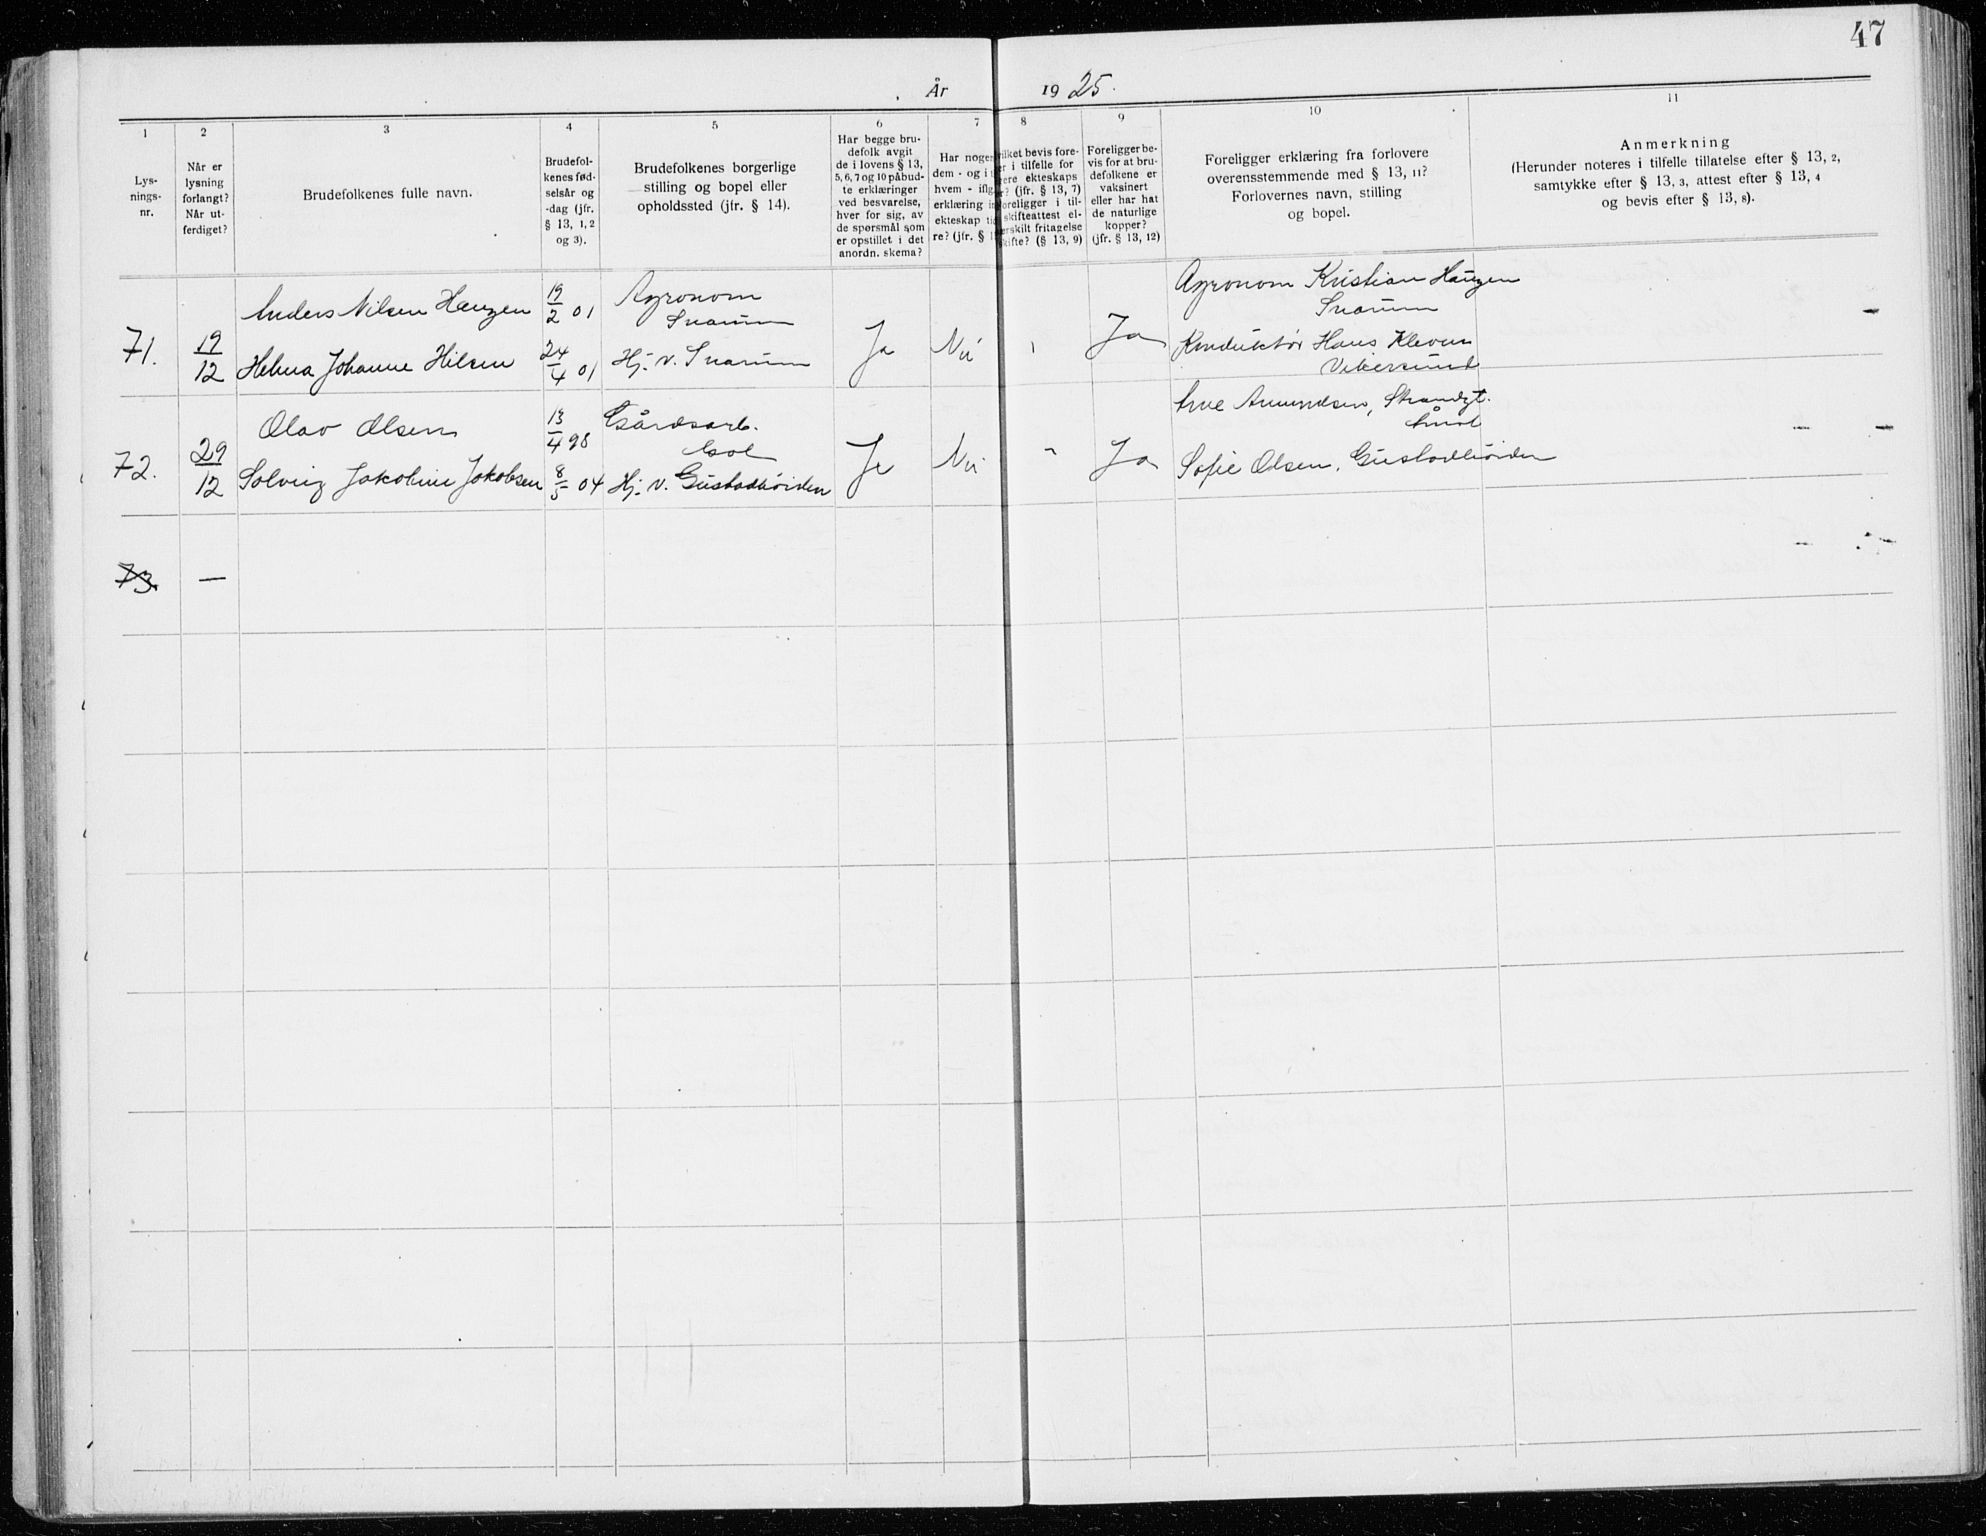 47
År 1925.
1
2
3
4
5
6
7
8
9
10
11
Lys-
nings-
nr.
Når er
lysning
forlangt?
Når ut-
ferdiget?
Brudefolkenes fulle navn.
Brudefol-
kenes fød-
selsår og
-dag (jfr.
§ 13, 1, 2
og 3).
Brudefolkenes borgerlige
stilling og bopel eller
opholdssted (jfr. § 14).
Har begge bru-
defolk avgit
de i lovens § 13,
5, 6, 7 og 10 påbud-
te erklæringer
ved besvarelse,
hver for sig, av
de spørsmål som
er opstillet i det
anordn. skema?
Har nogen
dem - og i
hvem - ifl
erklæring
ekteskap
re? (jfr. §
ilket bevis fore-
r i tilfelle for
ekteskaps
? (jfr. § 13, 7)
oreligger i til-
skifteattest el-
erskilt fritagelse
kifte? (§ 13, 9)
Foreligger be-
vis for at bru-
defolkene er
vaksinert
eller har hat
de naturlige
kopper?
(jfr. § 13, 12)
Foreligger erklæring fra forlovere
overensstemmende med § 13, 11?
Forlovernes navn, stilling
og bopel.
Anmerkning
(Herunder noteres i tilfelle tillatelse efter § 13, 2,
samtykke efter § 13, 3, attest efter § 13, 4
og bevis efter § 13, 8).
71.
19/12
Anders Nilsen Haugen
19/2 01
Agronom
Snarum
Helma Johanne Hilsen
24/4 01
Hj. v. Snarum
Ja
Nei
Ja
Agronom Kristian Haugen
Snarum
Konduktør Hans Kleven
Vikersund
72.
29/12
Olav Olsen
13/4 98
Gårdsarb.
Gol
Solveig Jakobine Jakobsen
8/5 04
Hj. v. Gustadhøiden
Ja
Nei
"
Ja
Arne Amundsen, Strandgt.
Åmot
Sofie Olsen, Gustadhøiden
73.
—